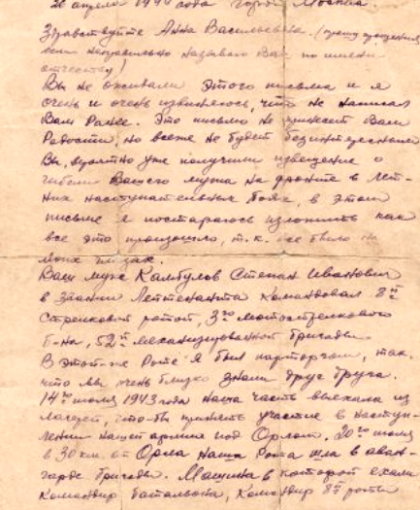 20 апреля 1944 года город Москва.
Здравствуйте Анна Васильевна. (прошу прощения
если неправильно называю Вас по имени
отчеству)
Вы не ожидали этого письма и я
очень и очень извиняюсь, что не написал
Вам Ранее. Это письмо не принесет Вам
Радости, но всеже не будет безинтересным
Вы, вероятно уже получили извещение о
гибели Вашего мужа на фронте в лет-
них наступательных боях, в этом
письме я постараюсь изложить как
все это произошло, т.к. все было на
моих глазах.
Ваш муж Камбулов Степан Иванович
в звании Лейтенанта командовал 8й
Стрелковой ротой, 3го мотострелкового
б-на, 52й механизированной бригады.
В этой-же Роте я был парторгом, так.
что мы очень близко знали друг друга.
14го июля 1943 года наша часть выехала из
лагерей, что-бы принять участие в насту-
плении нашей армии под Орлом. 20го июля
в 30 км. от Орла наша Рота шла в аван-
гарде бригады. Машина в которой ехали
командир батальона, командир 8й роты